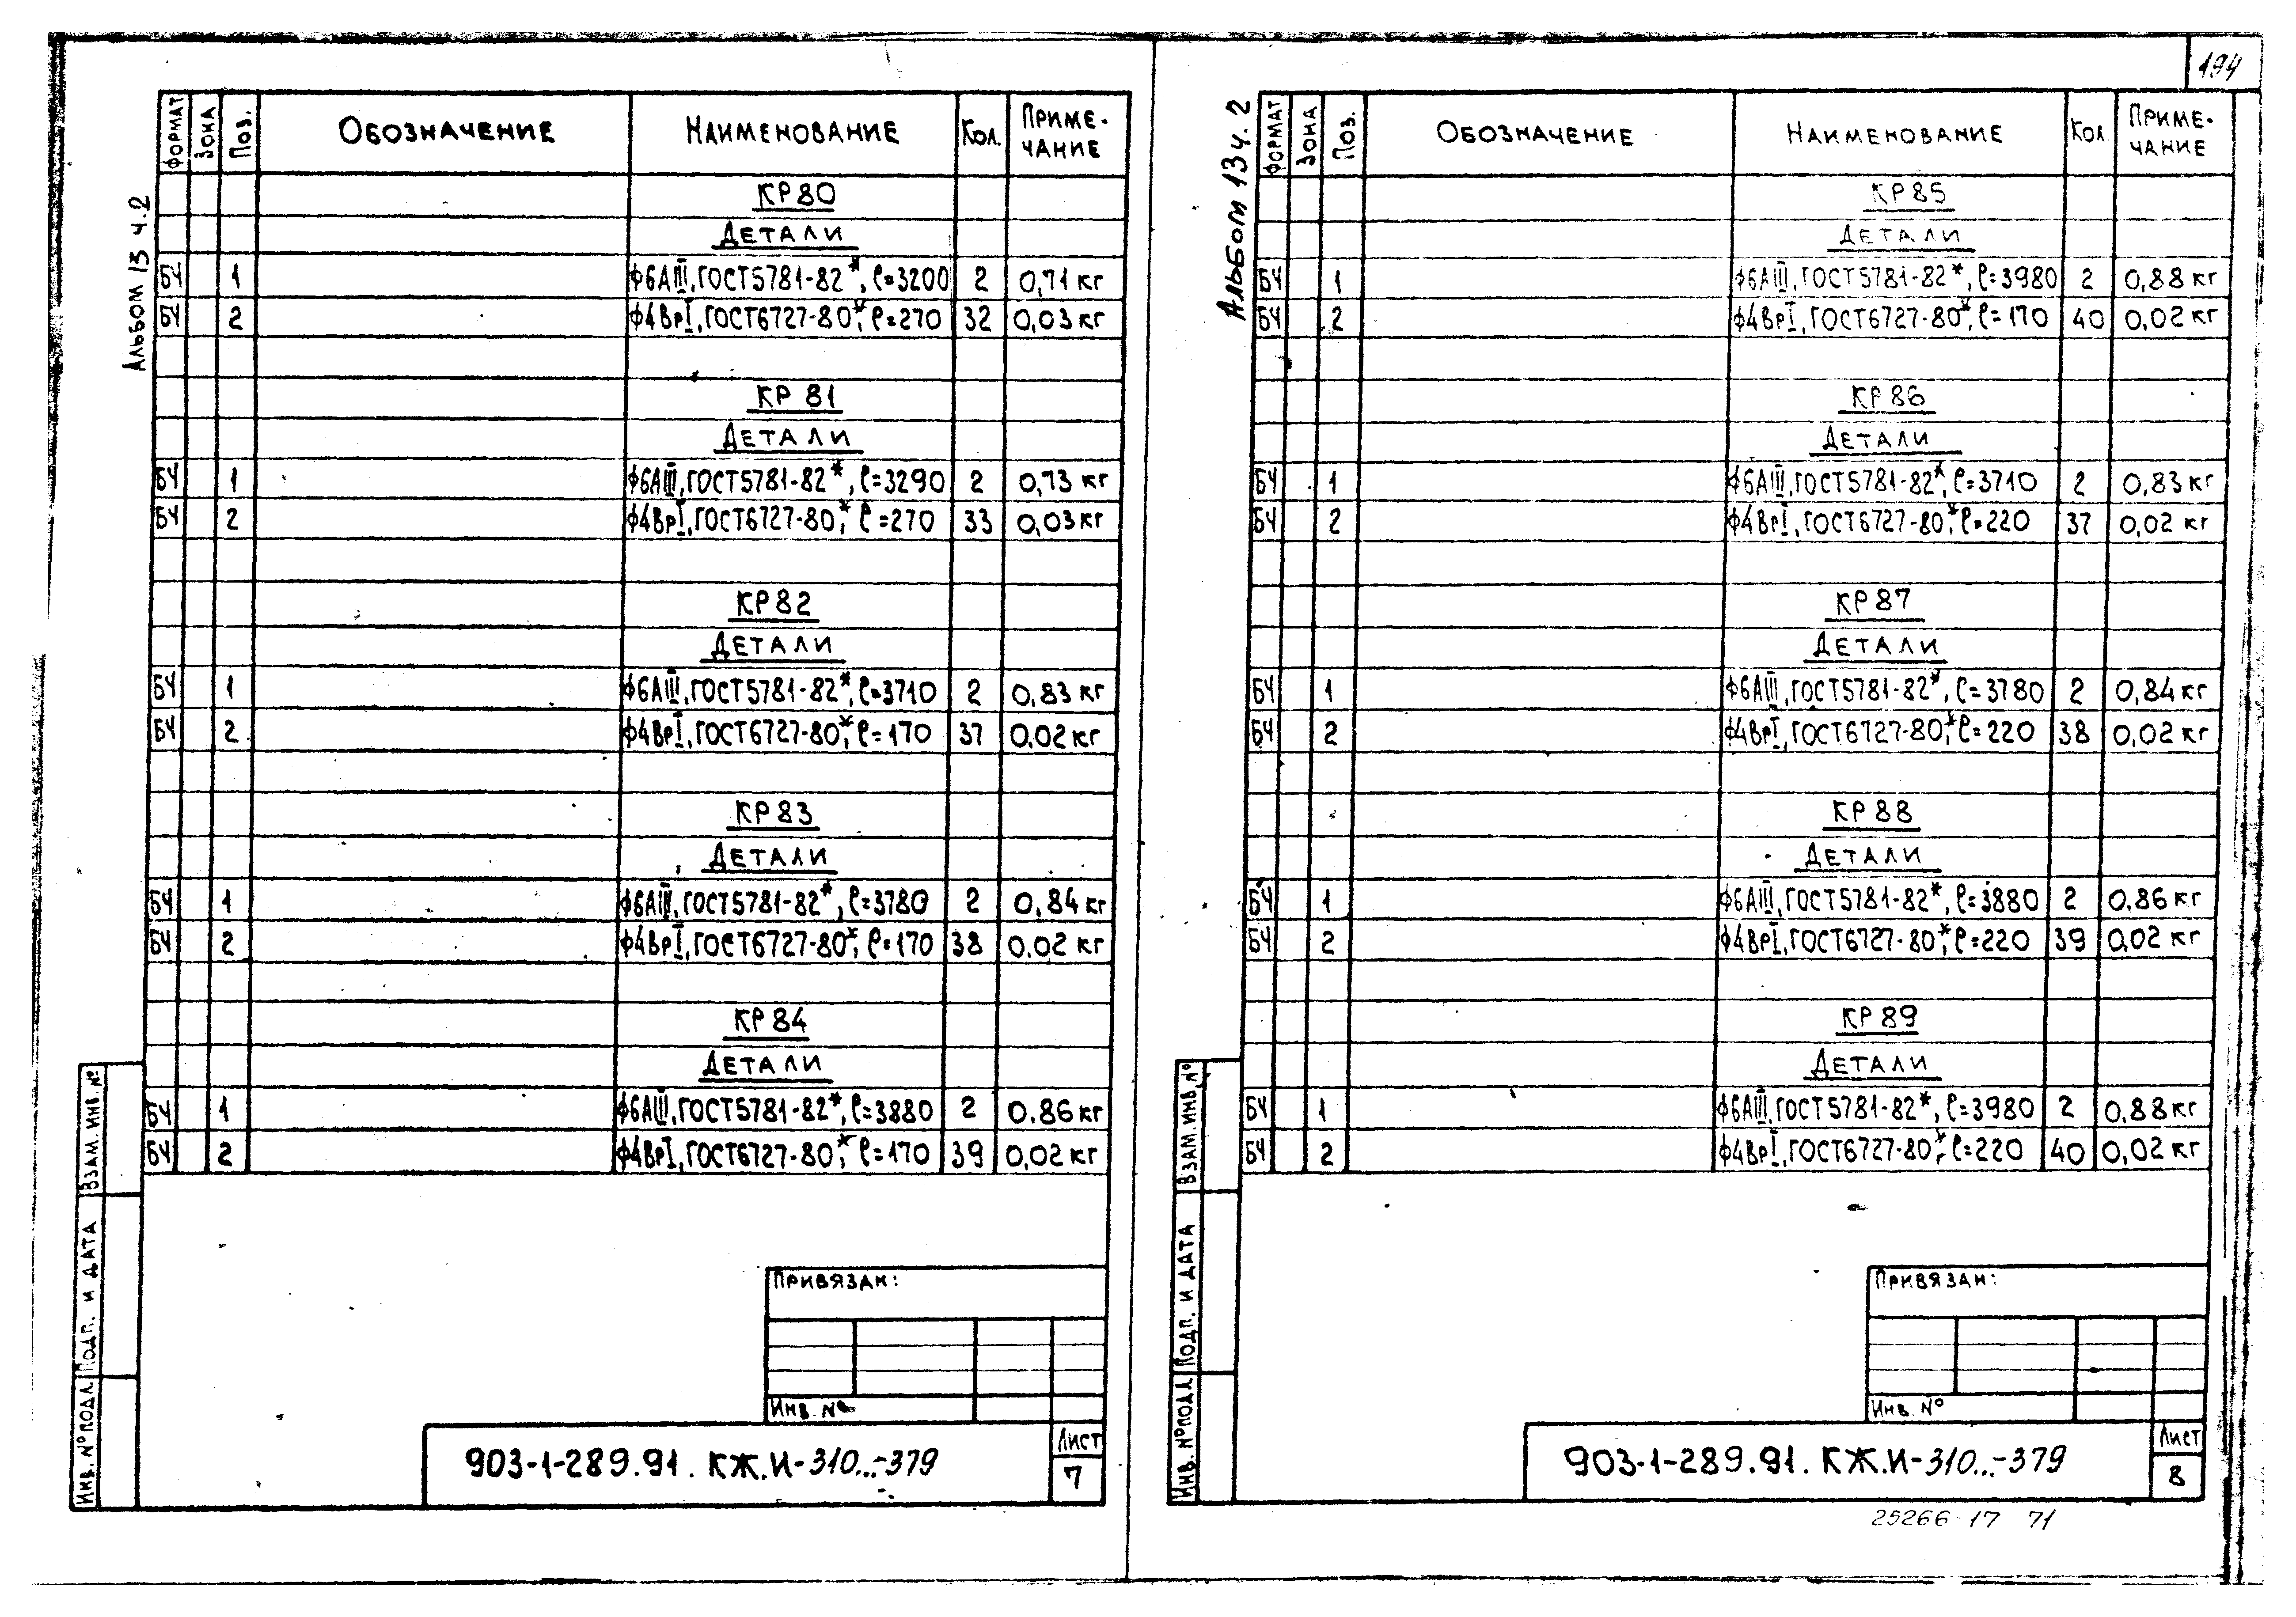 194
Альбом 13 ч.2
Формат Зона Поз. Обозначение Наименование Кол. Приме-чание
КР80
Детали
БЧ 1 ф6АIII, ГОСТ5781-82*, ℓ=3200 2 0,71 кг
БЧ 2 ф4ВрI, ГОСТ6727-80*, ℓ=270 32 0,03 кг
КР 81
Детали
БЧ 1 ф6АIII, ГОСТ5781-82*, ℓ=3290 2 0,73 кг
БЧ 2 ф4ВрI, ГОСТ6727-80*, ℓ=270 33 0,03 кг
КР82
Детали
БЧ 1 ф6АIII, ГОСТ5781-82*, ℓ=3710 2 0,83 кг
БЧ 2 ф4ВрI, ГОСТ6727-80*, ℓ=170 37 0,02 кг
КР83
Детали
БЧ 1 ф6АIII, ГОСТ5781-82*, ℓ=3780 2 0,84 кг
БЧ 2 ф4ВрI, ГОСТ6727-80*, ℓ=170 38 0,02 кг
КР84
Детали
БЧ 1 ф6АIII, ГОСТ5781-82*, ℓ=3880 2 0,86 кг
БЧ 2 ф4ВрI, ГОСТ6727-80*, ℓ=170 39 0,02 кг
Взам. инв. №
Подп. и дата
Инв. № подл
Привязан:
Инв. №
903-1-289.91. КЖ.И-310...-379
Лист
7
Альбом 13 ч. 2
Формат Зона Поз. Обозначение Наименование Кол. Приме-чание
КР85
Детали
БЧ 1 ф6АIII, ГОСТ5781-82*, ℓ=3980 2 0,88 кг
БЧ 2 ф4ВрI, ГОСТ6727-80*, ℓ=170 40 0,02 кг
КР86
Детали
БЧ 1 ф6АIII, ГОСТ5781-82*, ℓ=3710 2 0,83 кг
БЧ 2 ф4ВрI, ГОСТ6727-80*, ℓ=220 37 0,02 кг
КР87
Детали
БЧ 1 ф6АIII, ГОСТ5781-82*, ℓ=3780 2 0,84 кг
БЧ 2 ф4ВрI, ГОСТ6727-80*, ℓ=220 38 0,02 кг
КР88
Детали
БЧ 1 ф6АIII, ГОСТ5781-82*, ℓ=3880 2 0,86 кг
БЧ 2 ф4ВрI, ГОСТ6727-80*, ℓ=220 39 0,02 кг
КР89
Детали
БЧ 1 ф6АIII, ГОСТ5781-82*, ℓ=3980 2 0,88 кг
БЧ 2 ф4ВрI, ГОСТ6727-80*, ℓ=220 40 0,02 кг
Взам. инв. №
Подп. и дата
Инв. № подл
Привязан:
Инв. №
903-1-289.91. КЖ.И-310...-379
Лист
8
25266 17 71